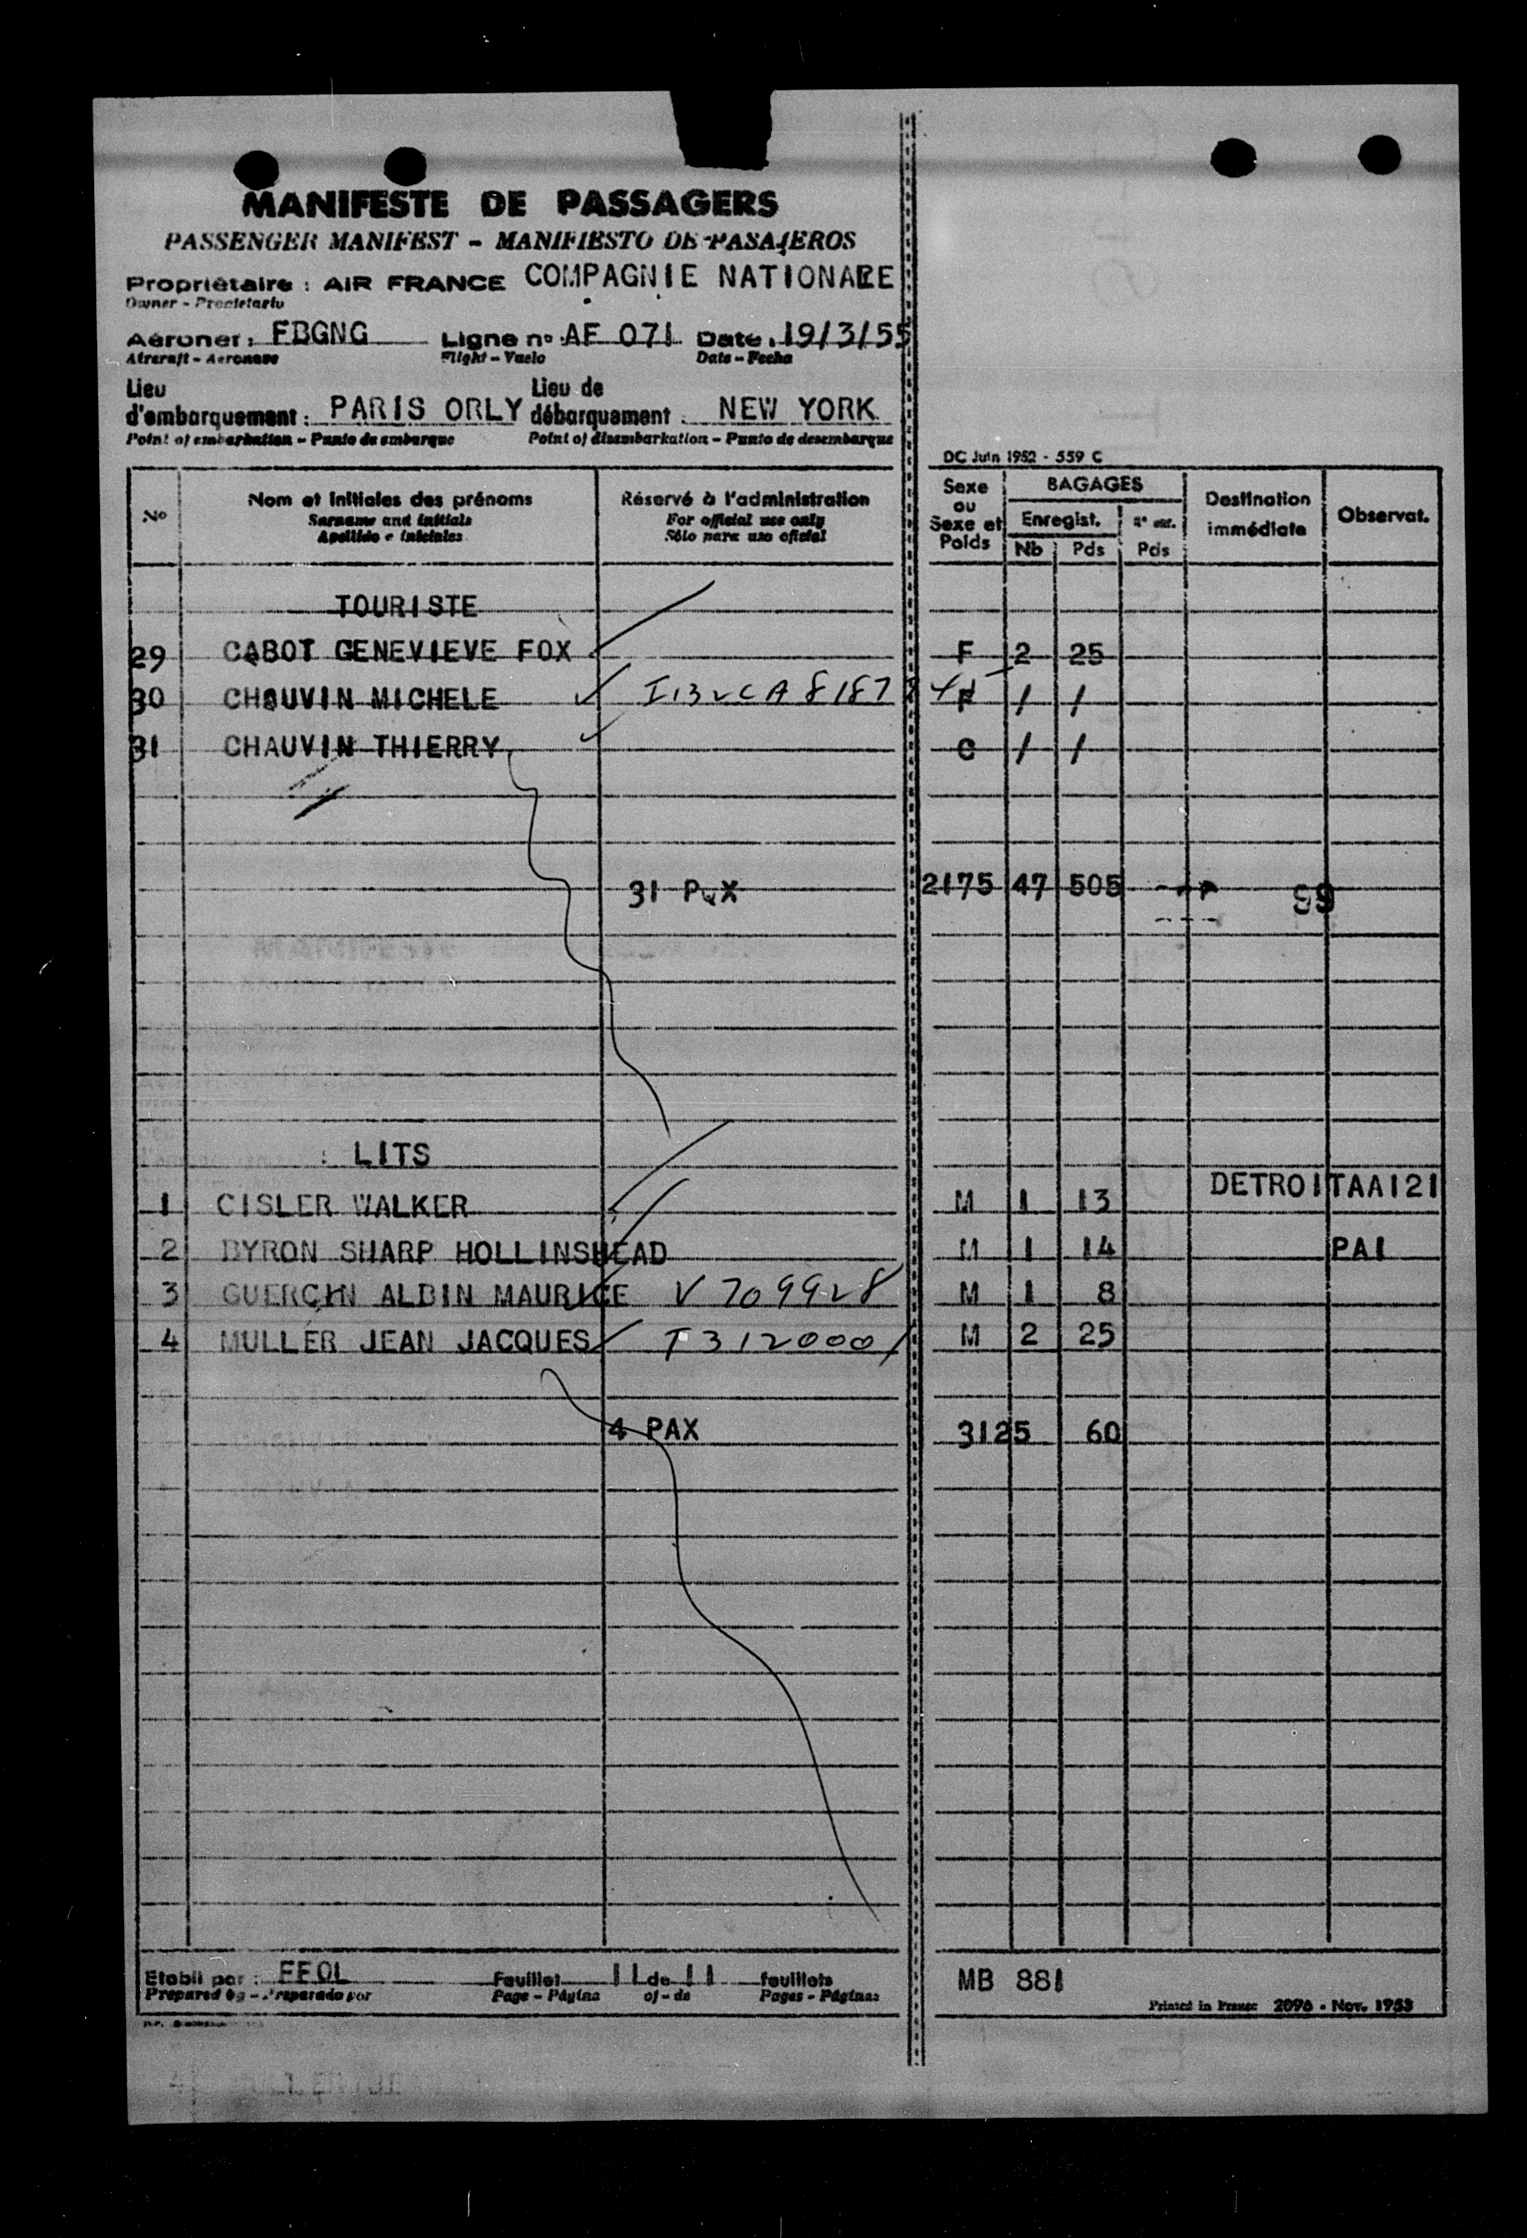 MANIFESTE DE PASSAGERS
PASSENGER MANIFEST - MANIFIESTO DE PASAJEROS
Propriétaire : AIR FRANCE COMPAGNIE NATIONALE
Owner - Propietario
Aéronef : FBGNG Ligne n° AF 071 Date : 19/3/55
Aircraft - Aeronave Flight - Vuelo Date - Fecha
Lieu Lieu de
d'embarquement : PARIS ORLY débarquement : NEW YORK
Point of embarkation - Punto de embarque Point of disembarkation - Punto de desembarque
DC Juin 1952 - 559 C
N° Nom et initiales des prénoms Réservé à l'administration Sexe ou Sexe et Poids BAGAGES Destination immédiate Observat.
Surname and initials For official use only Enregist.
Apellido e iniciales Sólo para uso oficial Nb Pds Pds
TOURISTE
29 CABOT GENEVIEVE FOX F 2 25
30 CHAUVIN MICHELE F / /
31 CHAUVIN THIERRY C / /
31 PAX 2175 47 505 99
LITS
1 CISLER WALKER M 1 13 DETROIT AA121
2 BYRON SHARP HOLLINSHEAD M 1 14 PAI
3 GUERCIN ALBIN MAURICE V 709928 M 1 8
4 MULLER JEAN JACQUES T 3120001 M 2 25
4 PAX 312 5 60
Etabli par : FFOL Feuillet 11 de 11 feuillets MB 881
Prepared by - Preparado por Page - Página of - de Pages - Páginas
Printed in France 2096 - Nov. 1953